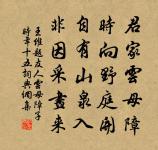 君家雲母障
時向野庭開
自有山泉入
非因采畫來
王維題友人雲母障子
時年十五詞典網集